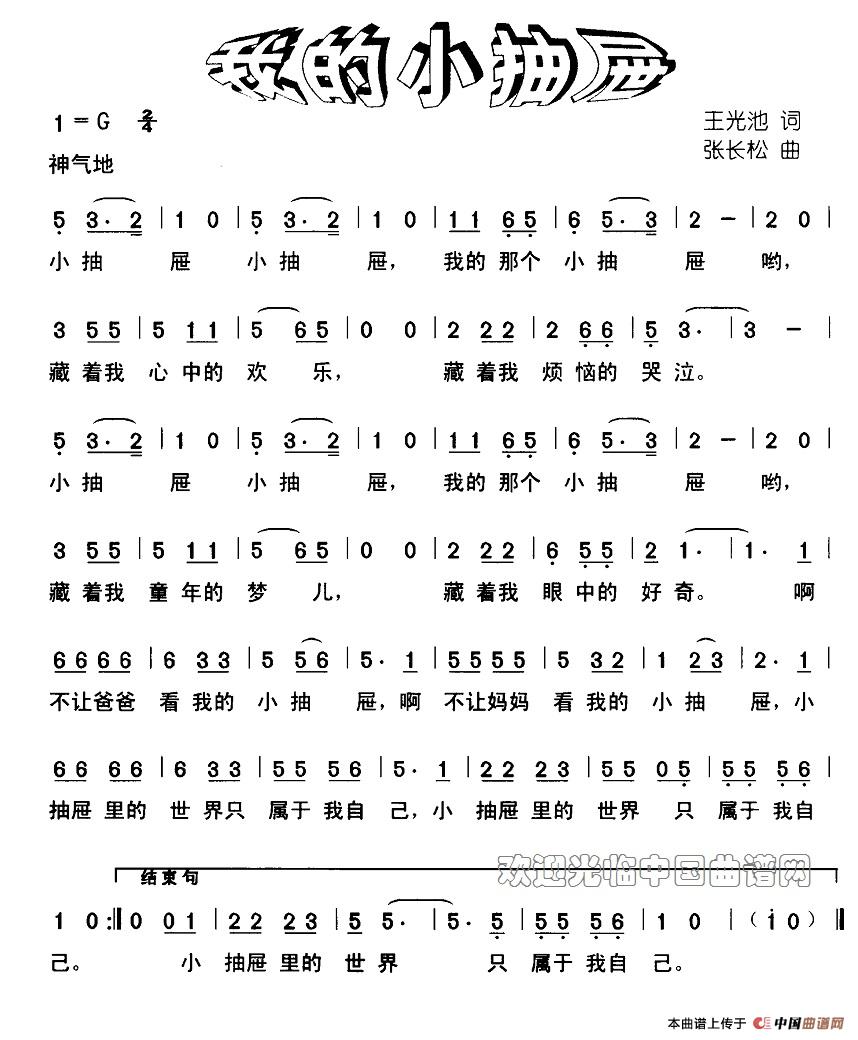 我的小抽屉
1=G 2/4
王光池 词
神气地
张长松 曲
5 3·2 | 1 0 | 5 3·2 | 1 0 | 11 65 | 6 5·3 | 2 – | 2 0 |
小抽 屉 小抽 屉， 我的 那个 小抽 屉 哟，
3 55 | 5 11 | 5 65 | 0 0 | 2 22 | 2 66 | 5 3· | 3 – |
藏 着我 心 中的 欢 乐， 藏 着我 烦 恼的 哭泣。
5 3·2 | 1 0 | 5 3·2 | 1 0 | 11 65 | 6 5·3 | 2 – | 2 0 |
小抽 屉 小抽 屉， 我的 那个 小抽 屉 哟，
3 55 | 5 11 | 5 65 | 0 0 | 2 22 | 6 55 | 2 1· | 1· 1 |
藏 着我 童 年的 梦 儿， 藏 着我 眼 中的 好奇。 啊
66 66 | 6 33 | 5 56 | 5· 1 | 55 55 | 5 32 | 1 23 | 2· 1 |
不让爸爸 看 我的 小 抽 屉，啊 不让妈妈 看 我的 小 抽 屉，小
66 66 | 6 33 | 55 56 | 5· 1 | 22 23 | 55 05 | 55 56 |
抽屉 里的 世 界只 属于 我自 己，小 抽屉 里的 世界 只 属于 我自
结束句
欢迎光临中国曲谱网
1 0 :‖ 0 01 | 22 23 | 5 5· | 5· 5 | 55 56 | 1 0 | （i 0）‖
己。 小 抽屉 里的 世 界 只 属于 我自 己。
本曲谱上传于 中国曲谱网